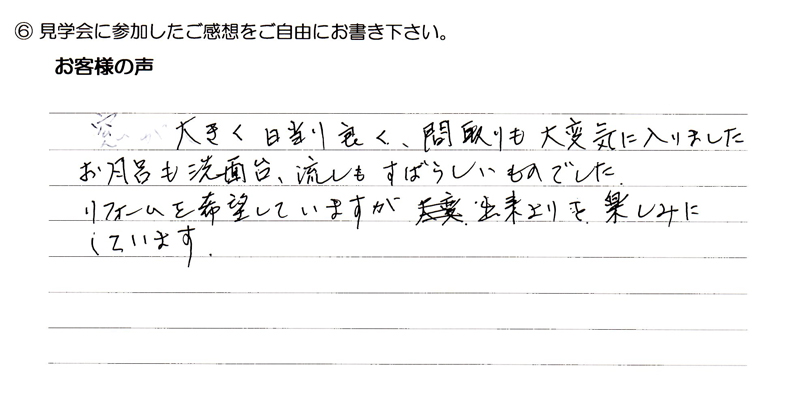 ⑥ 見学会に参加したご感想をご自由にお書き下さい。
お客様の声
大きく日当り良く、間取りも大変気に入りました
お風呂も洗面台、流しもすばらしいものでした。
リフォームを希望していますが 出来上りを楽しみに
しています。